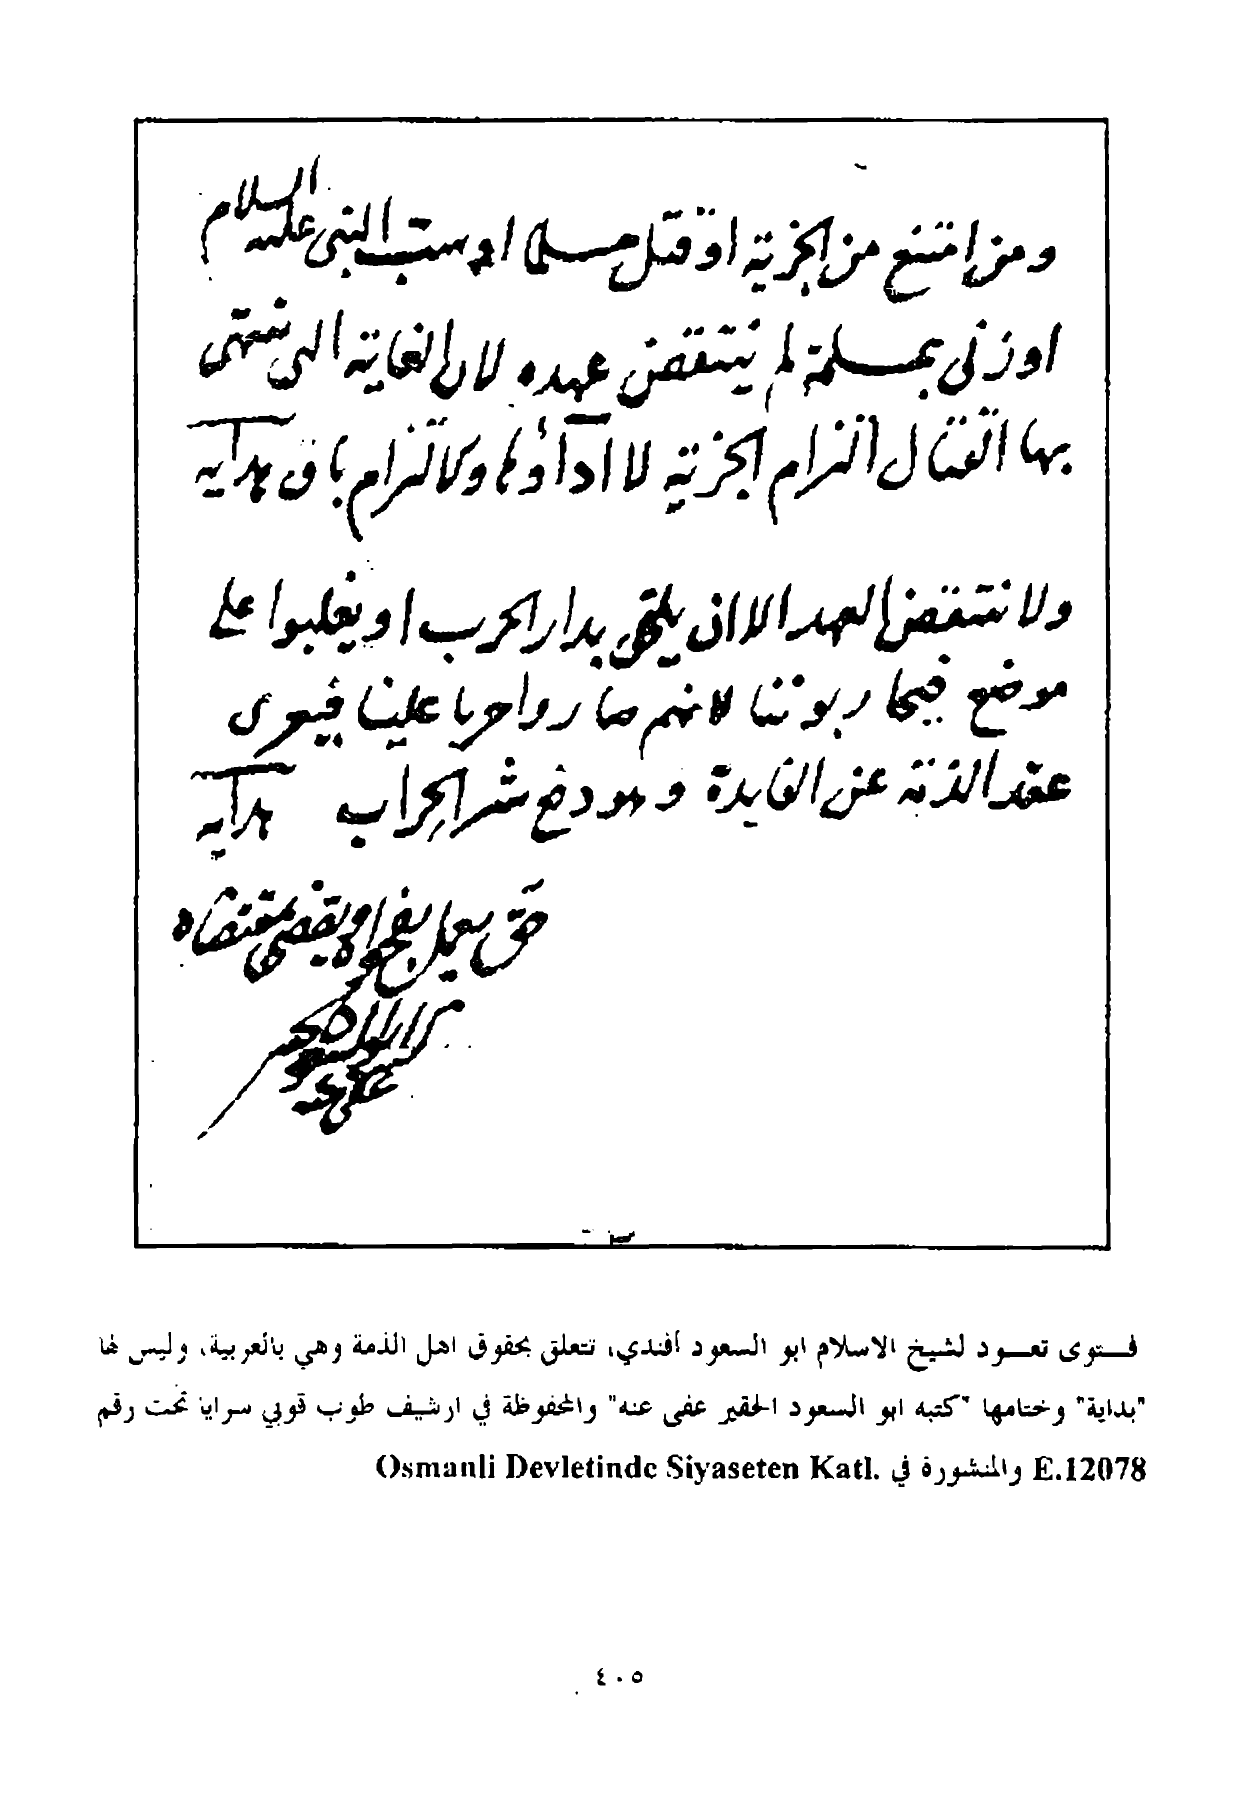 ومن امتنع من الجزية او قتل مسلما او سب النبى عليه السلام
او زنى بمسلمة لم ينتقض عهده لان الغاية التى ينتهى
بها القتال التزام الجزية لا اداؤها والالتزام باق هدايه
ولا ينتقض العهد الا ان يلتحق بدار الحرب او يغلبوا على
موضع فيحاربوننا لانهم صاروا حربا علينا فيعرى
عقد الذمة عن الفايدة وهو دفع شر الحراب هدايه
حق يعمل بفحواه ويقضى بمقتضاه
كتبه ابو السعود الحقير
عفى عنه
فــتوى تعــود لشيخ الاسلام ابو السعود أفندي، تتعلق بحقوق اهل الذمة وهي بالعربية، وليس لها
"بداية" وختامها "كتبه ابو السعود الحقير عفى عنه" والمحفوظة في ارشيف طوب قوبي سرايا تحت رقم
E.12078 والمنشورة في Osmanli Devletinde Siyaseten Katl.
٤٠٥